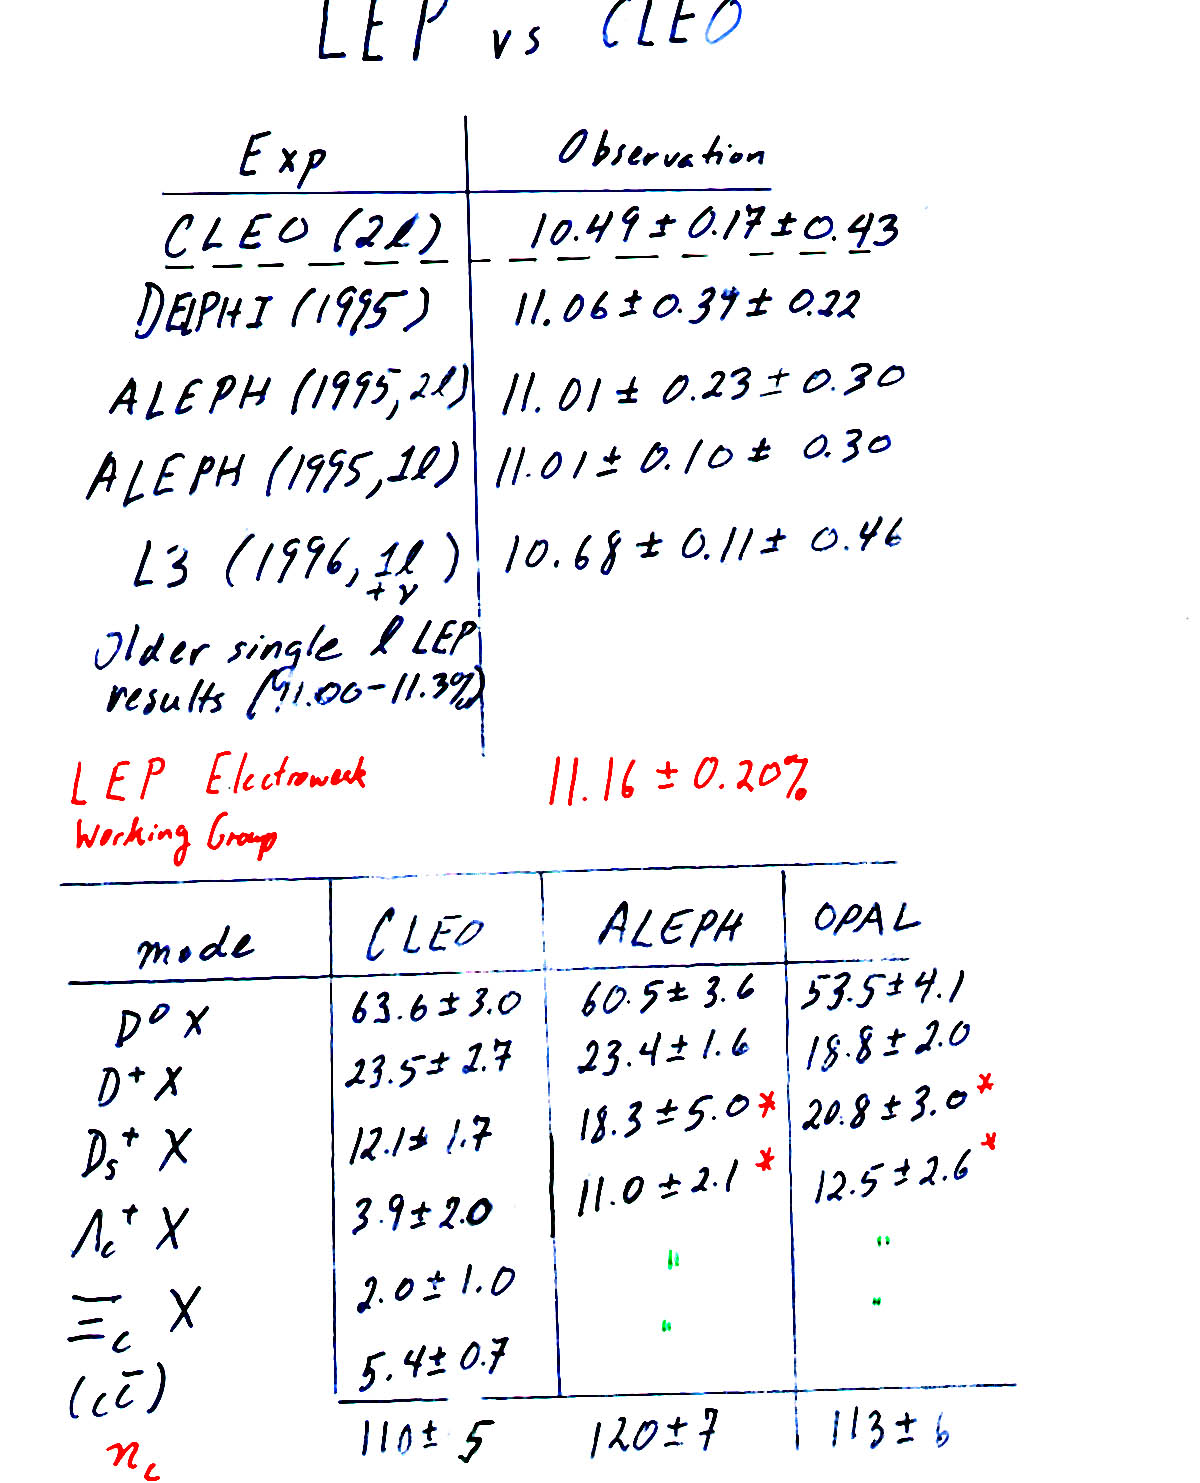 LEP vs CLEO
Exp Observation
CLEO (2ℓ) 10.49 ± 0.17 ± 0.43
DELPHI (1995) 11.06 ± 0.39 ± 0.22
ALEPH (1995, 2ℓ) 11.01 ± 0.23 ± 0.30
ALEPH (1995, 1ℓ) 11.01 ± 0.10 ± 0.30
L3 (1996, 1ℓ + ν) 10.68 ± 0.11 ± 0.46
Older single ℓ LEP
results (11.00-11.3%)
LEP Electroweak 11.16 ± 0.20%
Working Group
mode CLEO ALEPH OPAL
D⁰ X 63.6 ± 3.0 60.5 ± 3.6 53.5 ± 4.1
D⁺ X 23.5 ± 2.7 23.4 ± 1.6 18.8 ± 2.0
Dₛ⁺ X 12.1 ± 1.7 18.3 ± 5.0 * 20.8 ± 3.0 *
Λc⁺ X 3.9 ± 2.0 11.0 ± 2.1 * 12.5 ± 2.6 *
Ξc X 2.0 ± 1.0 " "
(cc̄) 5.4 ± 0.7 " "
nc 110 ± 5 120 ± 7 113 ± 6